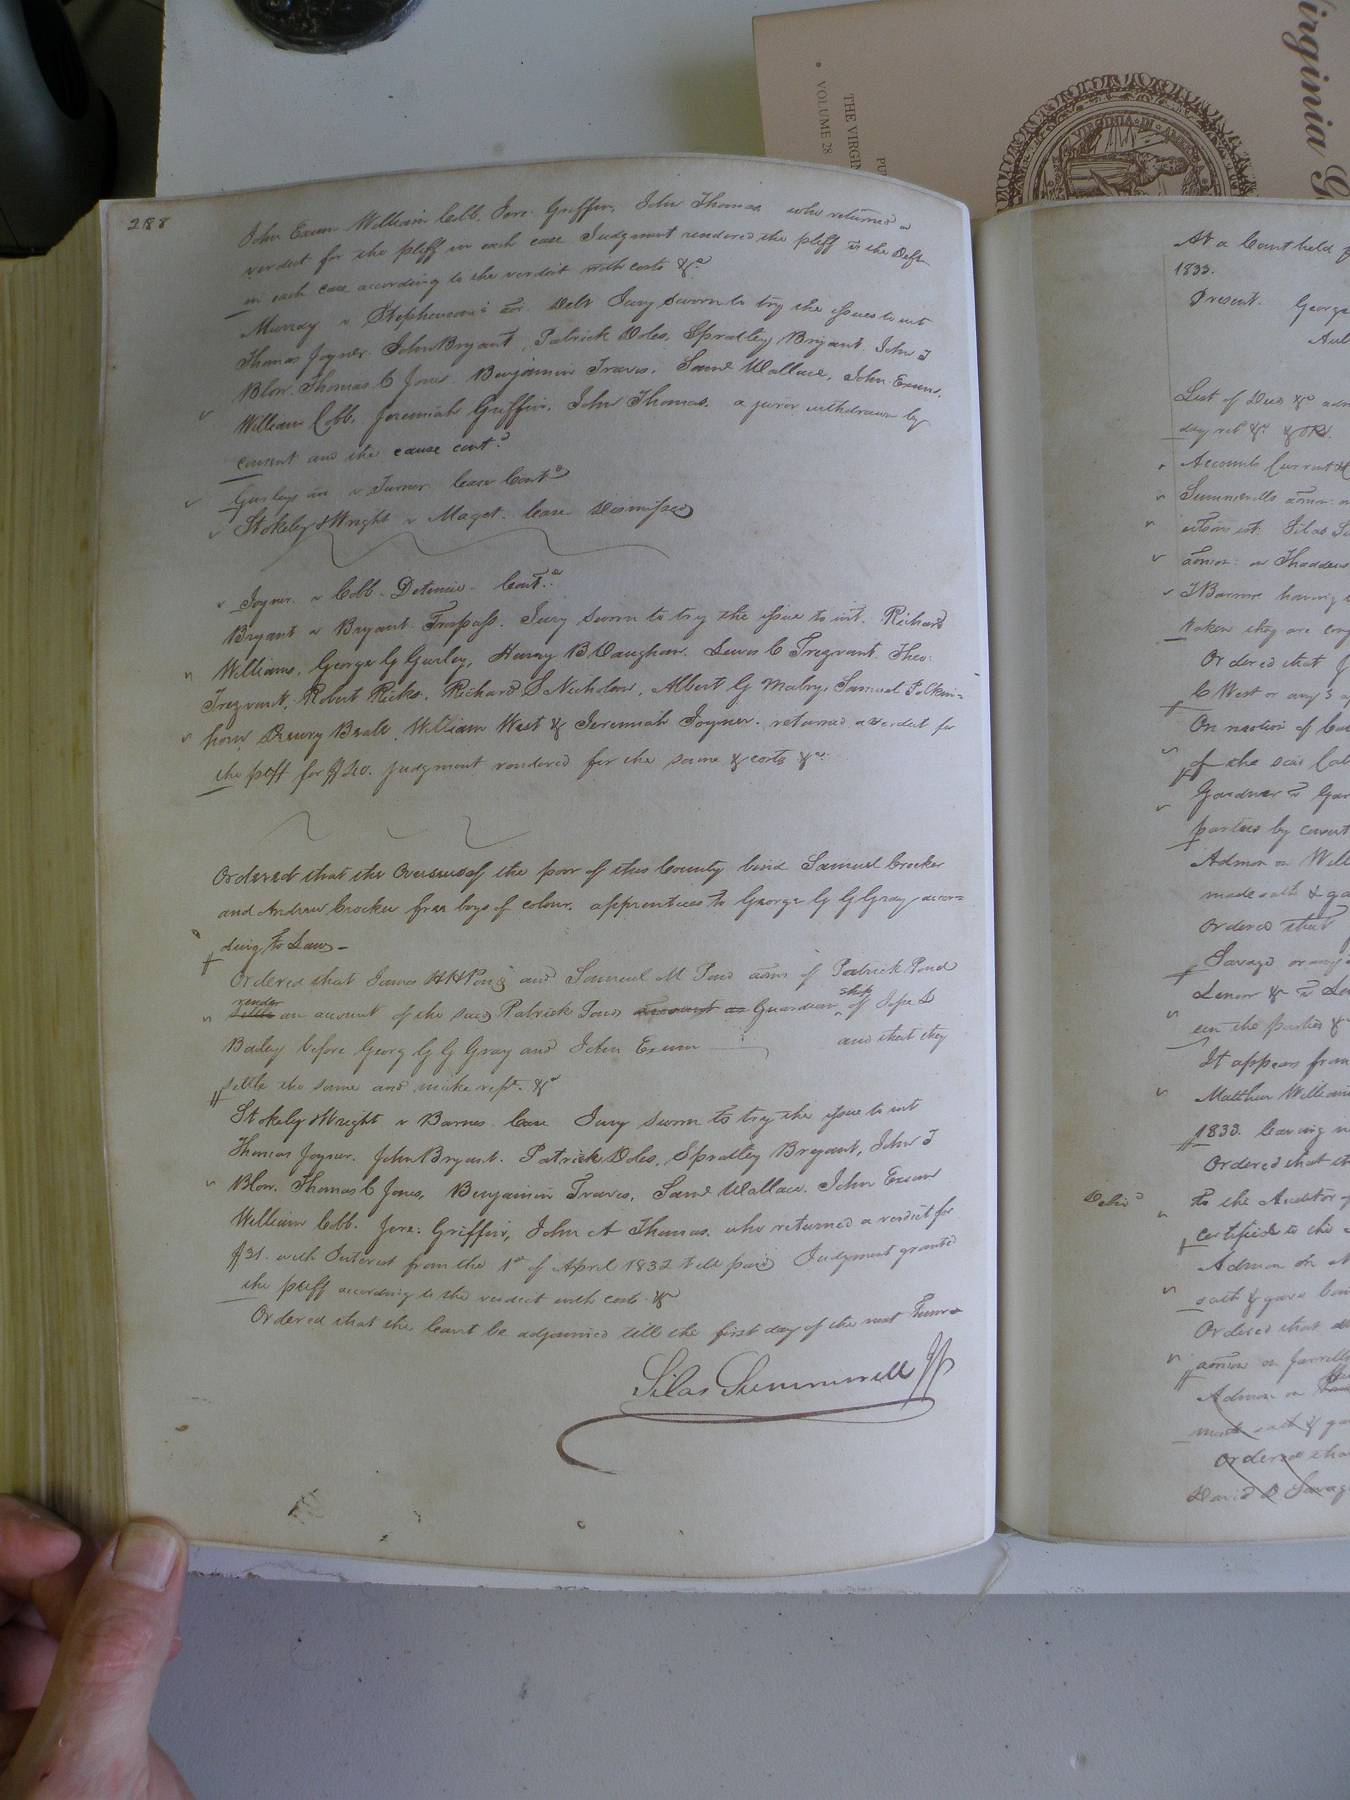 Virginia
THE VIRGIN
• VOLUME 28
PU
VIRGINIA IN
288
John Exum William Cobb, Jere: Griffin, John Thomas who returned a
verdict for the pltff in each case Judgment rendered the pltff vs the Deft
in each case according to the verdict with costs &c
Murray v Stephenson's Debt Jury sworn to try the issues to wit
Thomas Joyner John Bryant, Patrick Doles, Spratley Bryant, John T
Blow Thomas C Jones Benjamin Travis, Saml Wallace, John Exum,
William Cobb, Jeremiah Griffin, John Thomas. a juror withdrawn by
consent and the cause contd
Gurleys v Turner Case Contd
Stokeley Wright v Maget. Case Dismissed
Joyner v Cobb. Detenue. Contd
Bryant v Bryant Trespass. Jury sworn to try the issue to wit. Richard
Williams, George G Gurley, Henry B Vaughan. Lewis C Trezvant. Theo:
Trezvant, Robert Ricks, Richard S Nicholson, Albert G Mabry, Samuel Folkin=
horn Drewry Beale, William West & Jeremiah Joyner. returned a verdict for
the pltff for judgment rendered for the same & costs &c
Ordered that the Overseers of the poor of this County bind Samuel Crocker
and Andrew Crocker free boys of colour. apprentices to George G G Gray accor=
ding to Law –
Ordered that James and Samuel M Pond adms of Patrick Pond
render
settle an account of the said Patrick Ponds account as Guardian ship of
Bailey before Georg G G Gray and John Exum and that they
settle the same and make rept. &c
Stokeley Wright v Barnes Case Jury sworn to try the issue to wit
Thomas Joyner. John Bryant. Patrick Doles, Spratley Bryant, John T
Blow. Thomas C Jones, Benjamin Travis, Saml Wallace. John Exum
William Cobb. Jere: Griffin, John A Thomas. who returned a verdict for
$31. with Interest from the 1st of April 1832 till paid Judgment granted
the pltff according to the verdict with costs &c
Ordered that the Court be adjourned till the first day of the next Term
Silas Summerell JP
At a Court held f
1833.
Present. George
List of Deeds &c adm
day ret &c & OR.
Accounts Current
Summerells admor:
Silas Su
admor: on Thaddeus
T Barrow having
taken they are
Ordered that J
C West or any 3
On motion of
of the said
Gardner v Gar
parties by consent
Admon on Will
made oath & ga
Ordered that
Savage or any
Lenow &c v Le
een the parties &
It appears from
Matthew William
1833. leaving
Ordered that the
Delivd
to the Auditor of
certified to the
Admon on
oath & gave
Ordered that
admor on Jarrell
Admon on
made oath & ga
Ordered tha
David D Savage